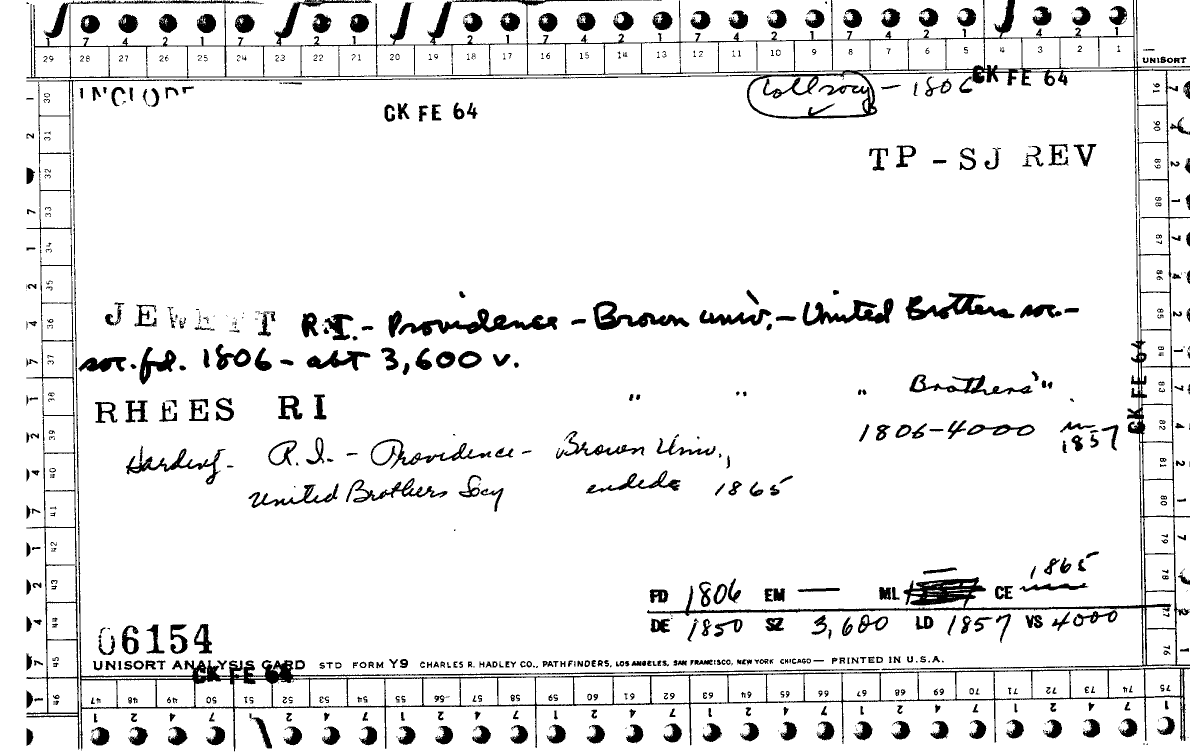 1 7 4 2 1 7 4 2 1 7 4 2 1 7 4 2 1 7 4 2 1 7 4 2 1 7 4 2 1
29 28 27 26 25 24 23 22 21 20 19 18 17 16 15 14 13 12 11 10 9 8 7 6 5 4 3 2 1
UNISORT
INCLODE
CK FE 64
Coll socy - 1806
CK FE 64
TP - SJ REV
JEWETT R.I. - Providence - Brown univ. - United Brothers soc. -
soc. fd. 1806 - abt 3,600 v.
RHEES RI " " " Brothers' "
1806-4000 in 1857
CK FE 64
Harding - R.I. - Providence - Brown Univ.,
United Brothers Socy ended 1865
1865
FD 1806 EM — ML CE
DE 1850 SZ 3,600 LD 1857 VS 4000
06154
UNISORT ANALYSIS CARD STD FORM Y9 CHARLES R. HADLEY CO., PATHFINDERS, LOS ANGELES, SAN FRANCISCO, NEW YORK CHICAGO — PRINTED IN U.S.A.
CK FE 64
47 48 49 50 51 52 53 54 55 56 57 58 59 60 61 62 63 64 65 66 67 68 69 70 71 72 73 74 75